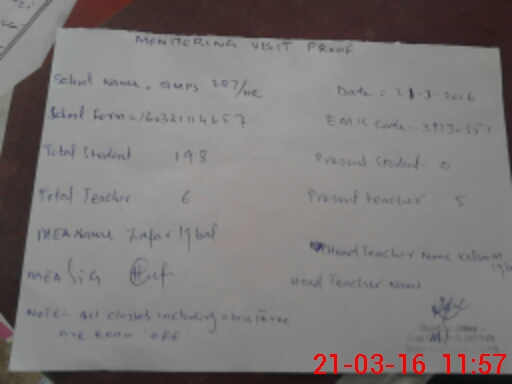 MENITORING VISIT PROOF
School Name = GMPS 207/HR
Date = 21-3-2016
School Form =
EMIS Code:
Total Student 198
Present Student 0
Total Teacher 6
Present teacher 5
MEA Name Zafar Iqbal
Head Teacher Name Kalsoom
MEA SiG
Head Teacher Name
NOTE- All classes including class Three
are 'OFF'
21-03-16 11:57